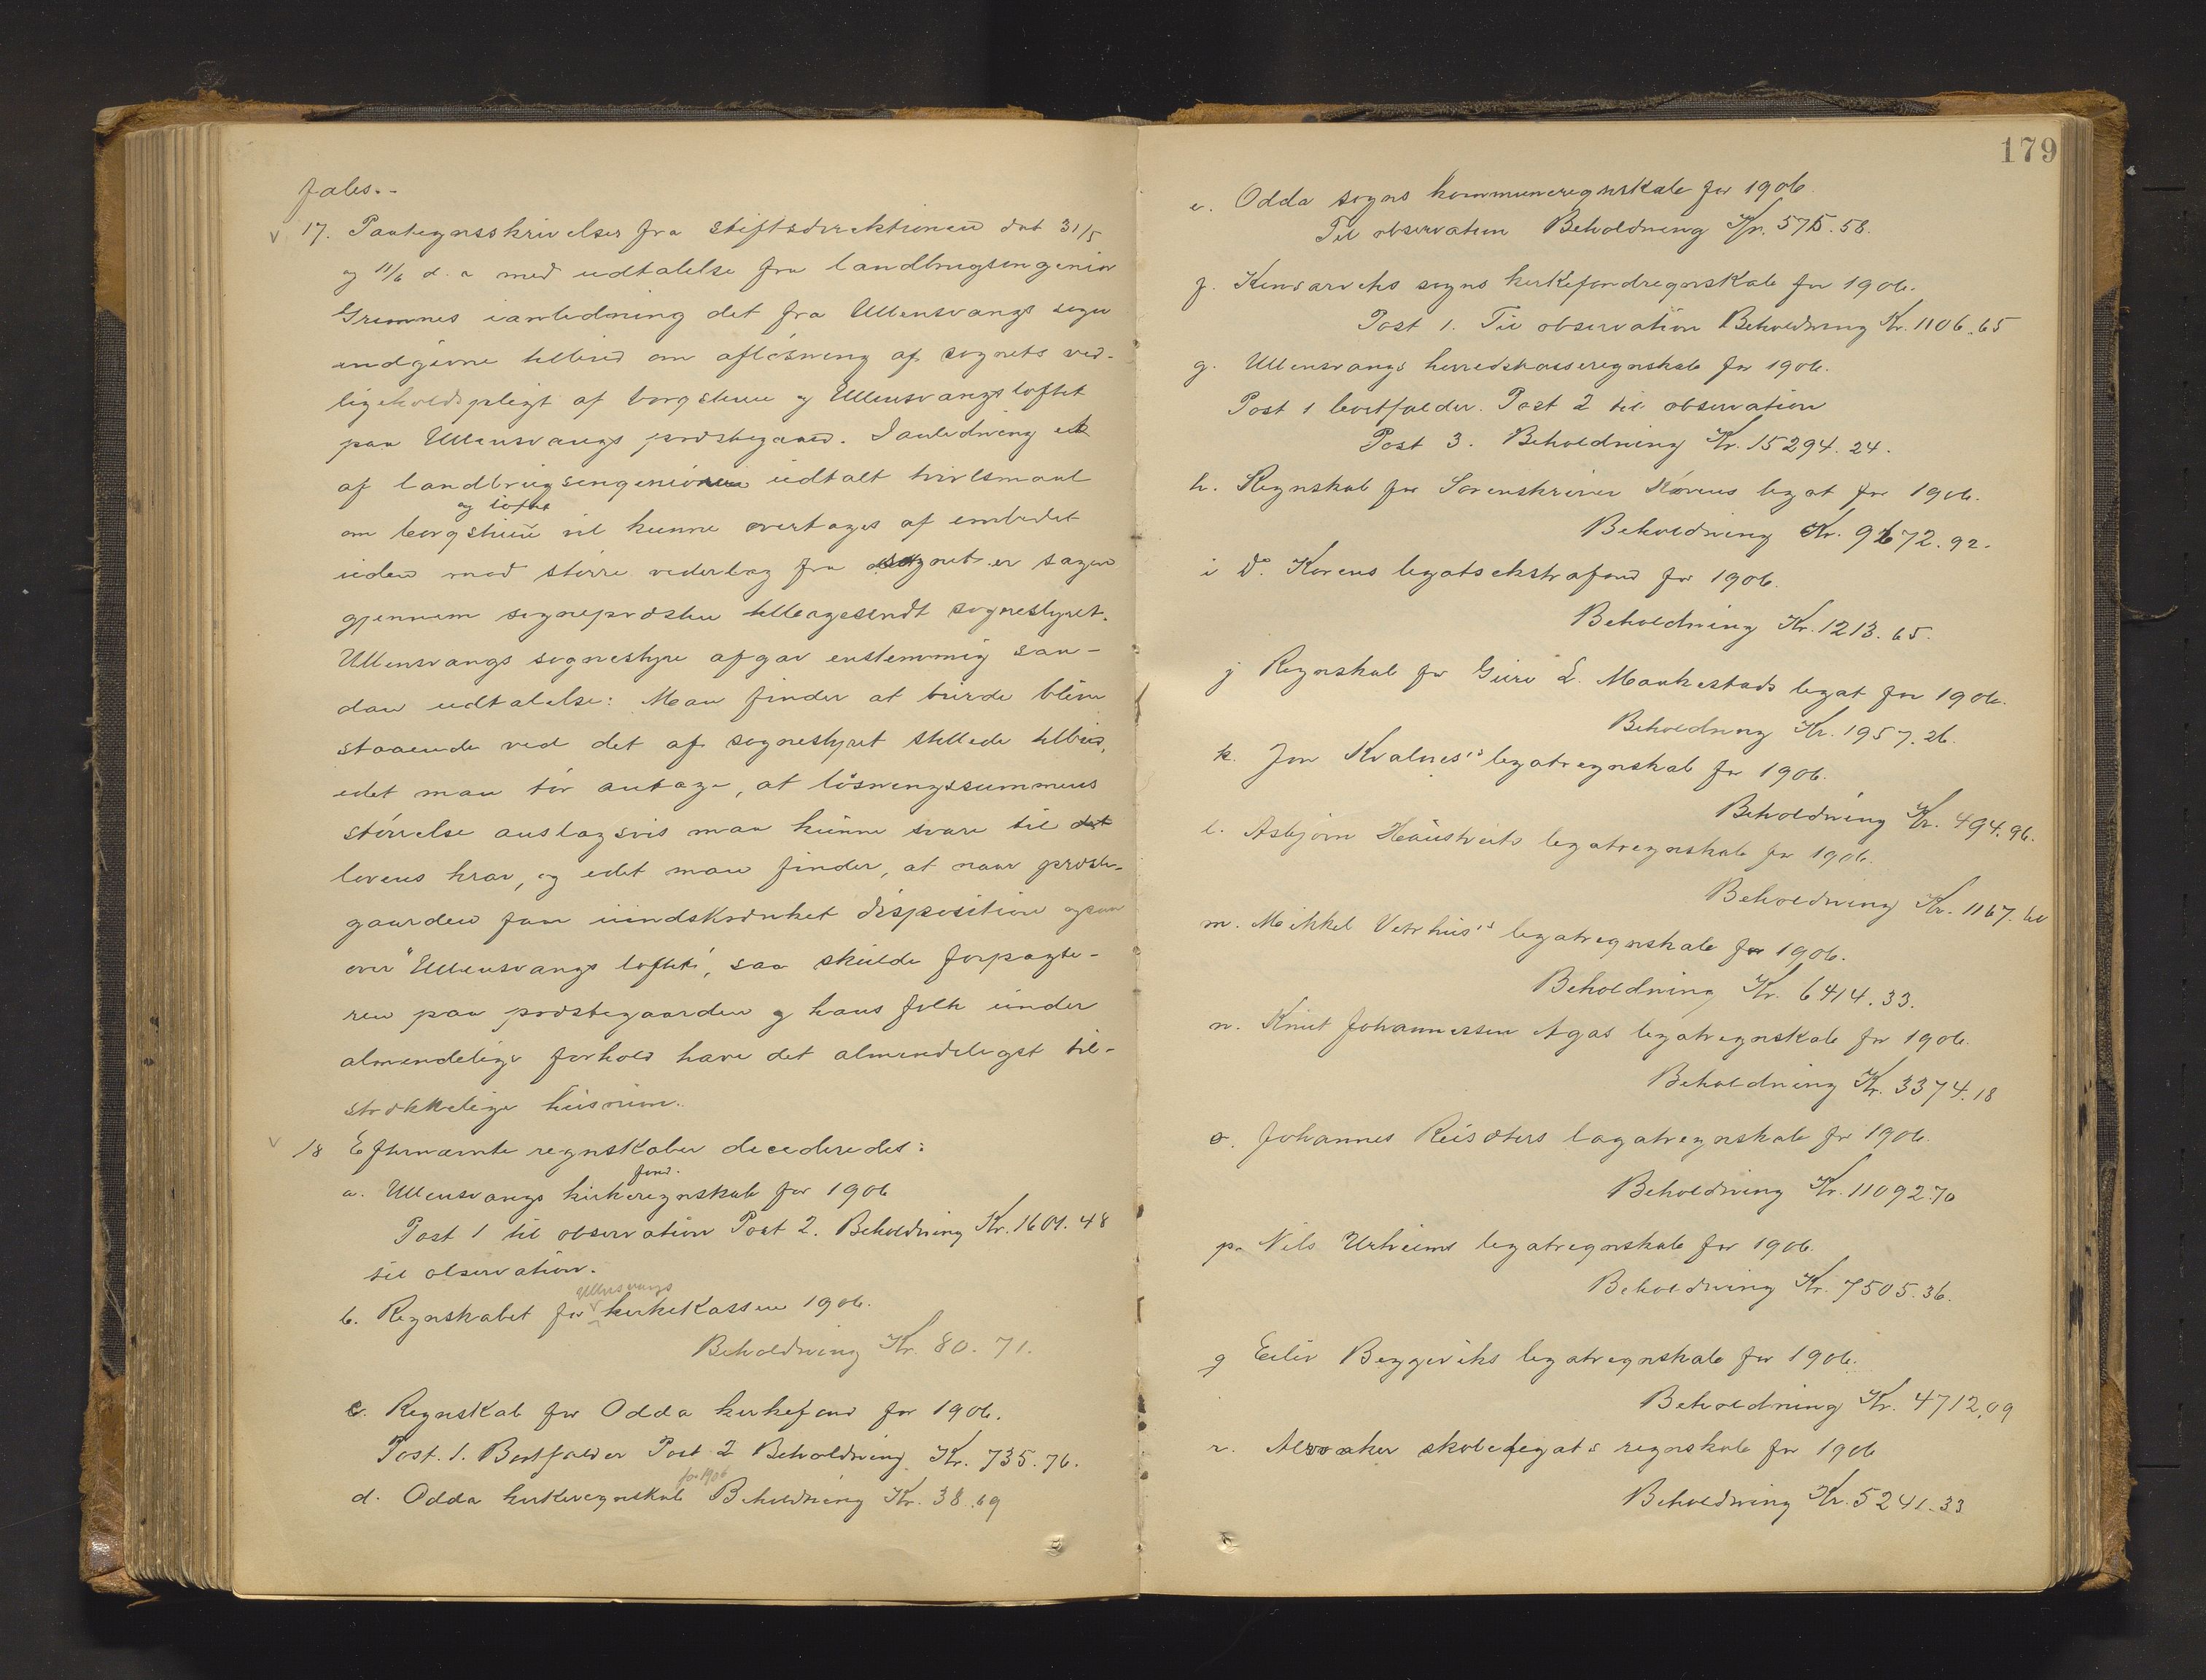 fales.-
17. Paategnsskrivelser fra stiftsdirektionen dat 31/5
og 11/6 d. a med udtalelse fra landbrugsingeniør
Grimnes ianledning det fra Ullensvangs sogn
indgivne tilbud om afløsning af sognets ved-
ligeholdspligt af borgstuen og Ullensvangs loftet
paa Ullensvangs prestegaard. I anledning et
af landbrugsingeniøren udtalt tvivlsmaal
og loftet
om borgstuen vil kunne overtages af embedet
uden mod større vederlag fra sognet er sagen
gjennem sognepræsten tilbagesendt sognestyret.
Ullensvangs sognestyre afgav enstemmig saa-
dan udtalelse: Man finder at burde blive
staaende ved det af sognestyret stillede tilbud,
idet man tør antage, at løsningssummens
størrelse anslagsvis maa kunne svare til det
lovens krav, og idet man finder, at naar præste-
gaarden faar uindskrænket disposition ogsaa
over "Ullensvangs loftet", saa skulde forpagte-
ren paa præstegaarden og hans folk under
almindelige forhold have det almindeligst til-
strækkelige husrum.
18 Efternævnte regnskaber decideredes:
fond.
a. Ullensvangs kirkeregnskab for 1906
Post 1 til observation Post 2. Beholdning Kr. 1601.48
til observation.
Ullensvangs
b. Regnskabet for kirkekassen 1906.
Beholdning Kr. 80.71.
c. Regnskab for Odda kirkefond for 1906.
Post. 1. Bortfalder Post 2 Beholdning Kr. 735.76.
for 1906
d. Odda kirkeregnskab Beholdning Kr. 38.69
179
e. Odda sogns kommuneregnskab for 1906.
Til observation Beholdning Kr. 575.58.
f. Kinsarviks sogns kirkefondregnskab for 1906.
Post 1. Til observation Beholdning Kr. 1106.65
g. Ullensvangs herredskasseregnskab for 1906.
Post 1 bortfalder. Post 2 til observation
Post 3. Beholdning Kr. 15294.24.
h. Regnskab for Sorenskriver Korens legat for 1906.
Beholdning Kr. 9672.92.
i Do. Korens legats ekstrafond for 1906.
Beholdning Kr. 1213.65.
j Regnskab for Guro L. Mankestads legat for 1906.
Beholdning Kr. 1957.26.
k. Jon Kvalnes's legatregnskab for 1906.
Beholdning Kr. 494.96.
l. Asbjørn Haustveits legatregnskab for 1906.
Beholdning Kr. 1167.60
m. Mikkel Vetrhus's legatregnskab for 1906.
Beholdning Kr. 6414.33.
n. Knut Johannessen Agas legatregnskab for 1906.
Beholdning Kr. 3374.18
o. Johannes Reisæters lagatregnskab for 1906.
Beholdning Kr. 11092.70
p. Nils Urheims legatregnskab for 1906.
Beholdning Kr. 7505.36.
q Eiliv Byggeviks legatregnskab for 1906.
Beholdning Kr. 4712,09
r. Alsaker skolelegats regnskab for 1906
Beholdning Kr. 5241.33